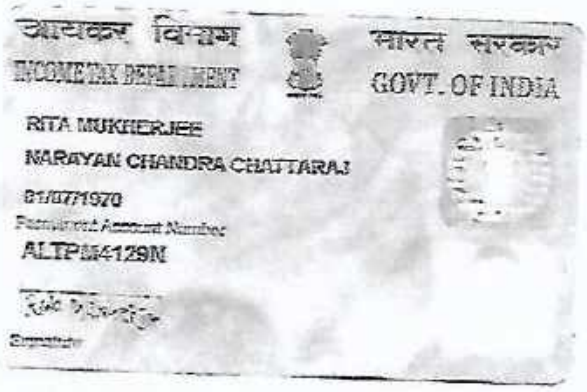 आयकर विभाग
भारत सरकार
INCOME TAX DEPARTMENT
GOVT. OF INDIA
RITA MUKHERJEE
NARAYAN CHANDRA CHATTARAJ
01/07/1970
Permanent Account Number
ALTPM4129N
Signature